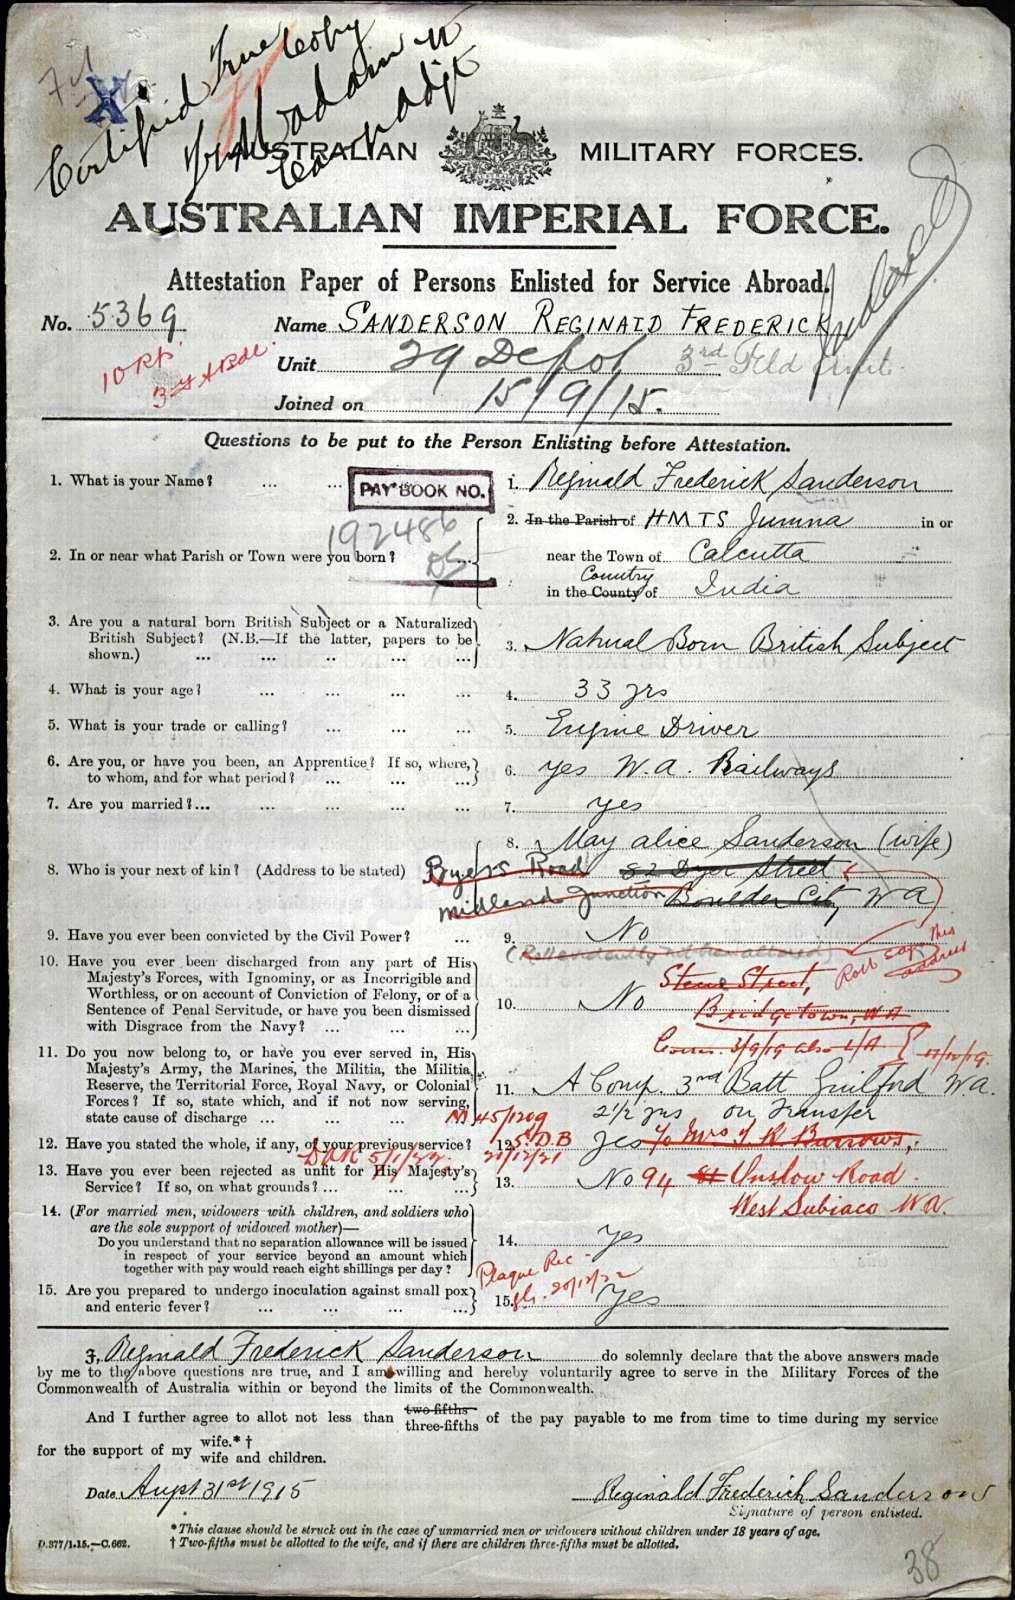 Certified True Copy
Camp Adjt
X
AUSTRALIAN MILITARY FORCES.
AUSTRALIAN IMPERIAL FORCE.
Attestation Paper of Persons Enlisted for Service Abroad.
No. 5369 Name SANDERSON REGINALD FREDERICK
Unit 29 Depot 3rd Fld Amb.
Joined on 15/9/15.
Questions to be put to the Person Enlisting before Attestation.
1. What is your Name? ... ... 1. Reginald Frederick Sanderson
PAY BOOK NO.
192486
2. In the Parish of HMTS Jumna in or
2. In or near what Parish or Town were you born? ... near the Town of Calcutta
Country
in the County of India
3. Are you a natural born British Subject or a Naturalized
British Subject? (N.B.—If the latter, papers to be
shown.) ... ... ... ... ... 3. Natural Born British Subject
4. What is your age? ... ... ... ... 4. 33 yrs
5. What is your trade or calling? ... ... ... 5. Engine Driver
6. Are you, or have you been, an Apprentice? If so, where,
to whom, and for what period? ... ... ... 6. yes W.A. Railways
7. Are you married?... ... ... ... ... 7. yes
8. May Alice Sanderson (wife)
8. Who is your next of kin? (Address to be stated) Byers Road 82 Dyer Street
Midland Junction Boulder City W A
9. Have you ever been convicted by the Civil Power? ... 9. No
This
address
10. Have you ever been discharged from any part of His
Majesty's Forces, with Ignominy, or as Incorrigible and
Worthless, or on account of Conviction of Felony, or of a
Sentence of Penal Servitude, or have you been dismissed
with Disgrace from the Navy? ... ... ... 10. No
Street,
Bridgetown, WA
3/9/19 also 17/12/19.
11. Do you now belong to, or have you ever served in, His
Majesty's Army, the Marines, the Militia, the Militia
Reserve, the Territorial Force, Royal Navy, or Colonial
Forces? If so, state which, and if not now serving,
state cause of discharge ... ... ... ... 11. A Comp. 3rd Batt Guilford W.A.
2½ yrs on Transfer
45/1209
12. Have you stated the whole, if any, of your previous service? 12. yes
S.D.B
21/12/21
C/o Mrs J. R. Burrows,
5/1/22
13. Have you ever been rejected as unfit for His Majesty's
Service? If so, on what grounds? ... ... ... 13. No
94 Onslow Road.
West Subiaco W.A.
14. (For married men, widowers with children, and soldiers who
are the sole support of widowed mother)—
Do you understand that no separation allowance will be issued
in respect of your service beyond an amount which
together with pay would reach eight shillings per day? 14. yes
Plaque Rec
20/12/22
15. Are you prepared to undergo inoculation against small pox
and enteric fever? ... ... ... ... 15. Yes
I, Reginald Frederick Sanderson do solemnly declare that the above answers made
by me to the above questions are true, and I am willing and hereby voluntarily agree to serve in the Military Forces of the
Commonwealth of Australia within or beyond the limits of the Commonwealth.
And I further agree to allot not less than two-fifths three-fifths of the pay payable to me from time to time during my service
for the support of my wife.* † wife and children.
Date Augst 31st 1915 Reginald Frederick Sanderson
Signature of person enlisted.
*This clause should be struck out in the case of unmarried men or widowers without children under 18 years of age.
D.377/1.15.—C.662. † Two-fifths must be allotted to the wife, and if there are children three-fifths must be allotted.
38